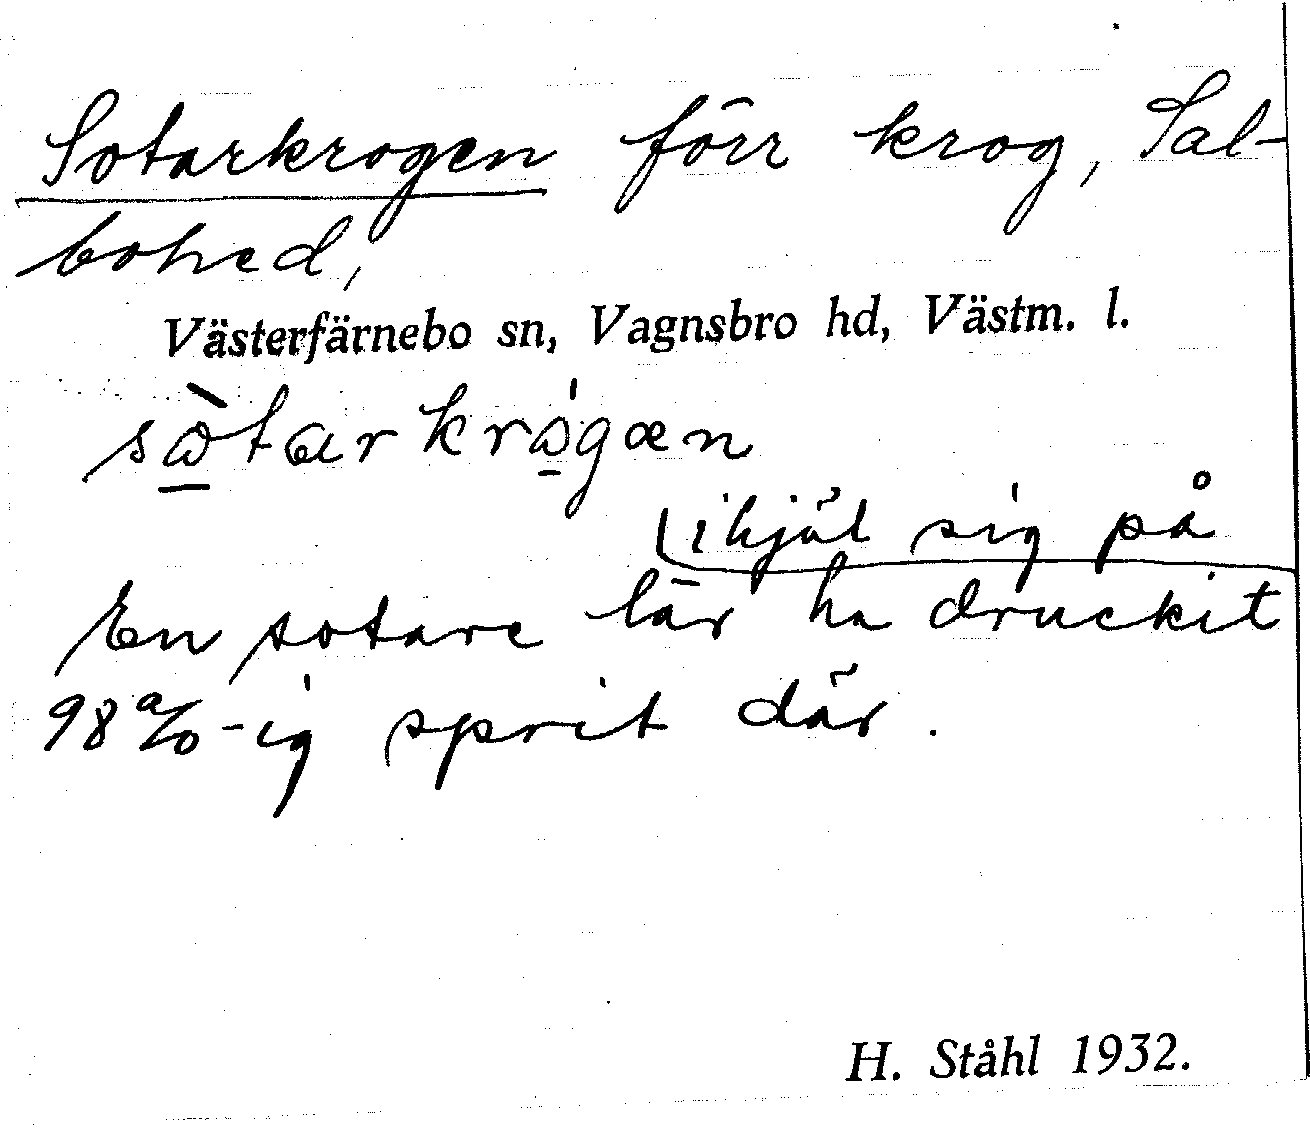 Sotarkrogen förr krog, Sal-
bohed,
Västerfärnebo sn, Vagnsbro hd, Västm. l.
sòtarkrógæn
ihjäl sig på
En sotare lär ha druckit
98%-ig sprit där.
H. Ståhl 1932.